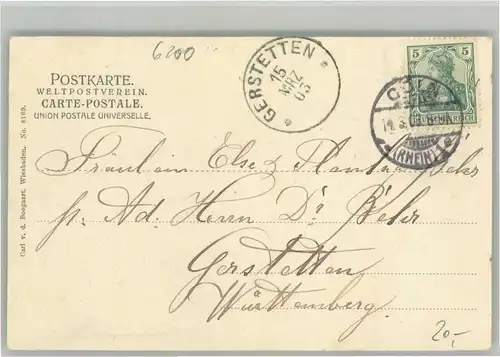 6200
POSTKARTE.
WELTPOSTVEREIN.
CARTE-POSTALE.
UNION POSTALE UNIVERSELLE.
GERSTETTEN
15
MRZ
03
5 5
CÖLN
DEUTSCHES REICH
(RHEIN)
Fräulein Else
p. Ad. Herrn Dr
Gerstetten
Württemberg.
20,-
Carl v. d. Boogaart, Wiesbaden. No. 8169.